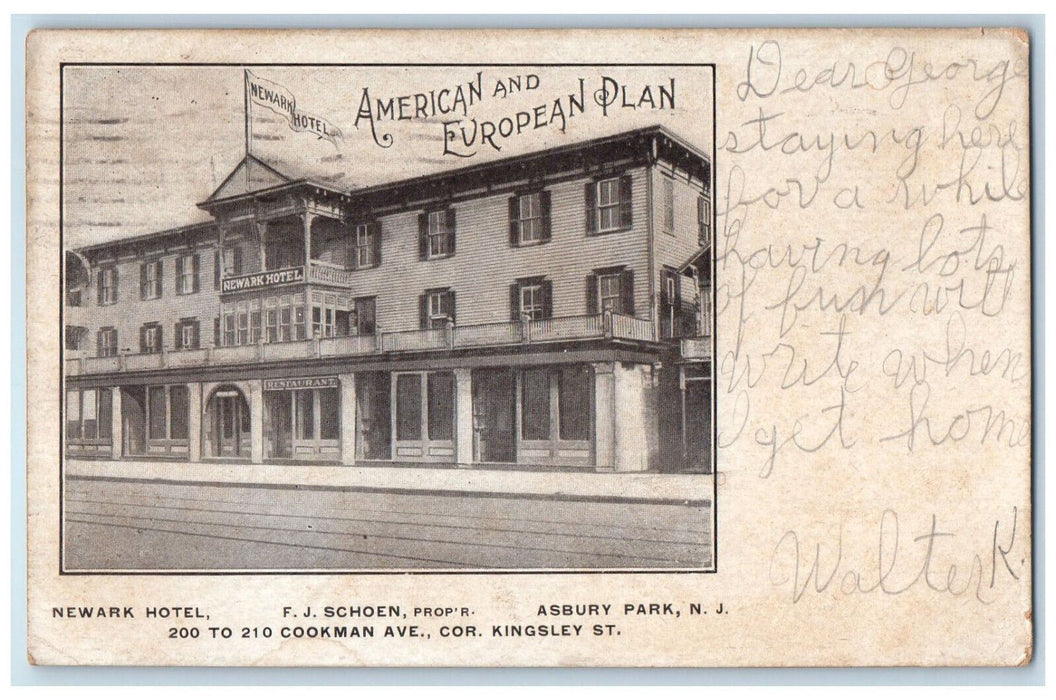 AMERICAN AND
EUROPEAN PLAN
NEWARK
HOTEL
NEWARK HOTEL
RESTAURANT.
Dear George
staying here
for a while
having lots
of fush will
write when
I get home
Walter K.
NEWARK HOTEL, F. J. SCHOEN, PROP'R. ASBURY PARK, N. J.
200 TO 210 COOKMAN AVE., COR. KINGSLEY ST.